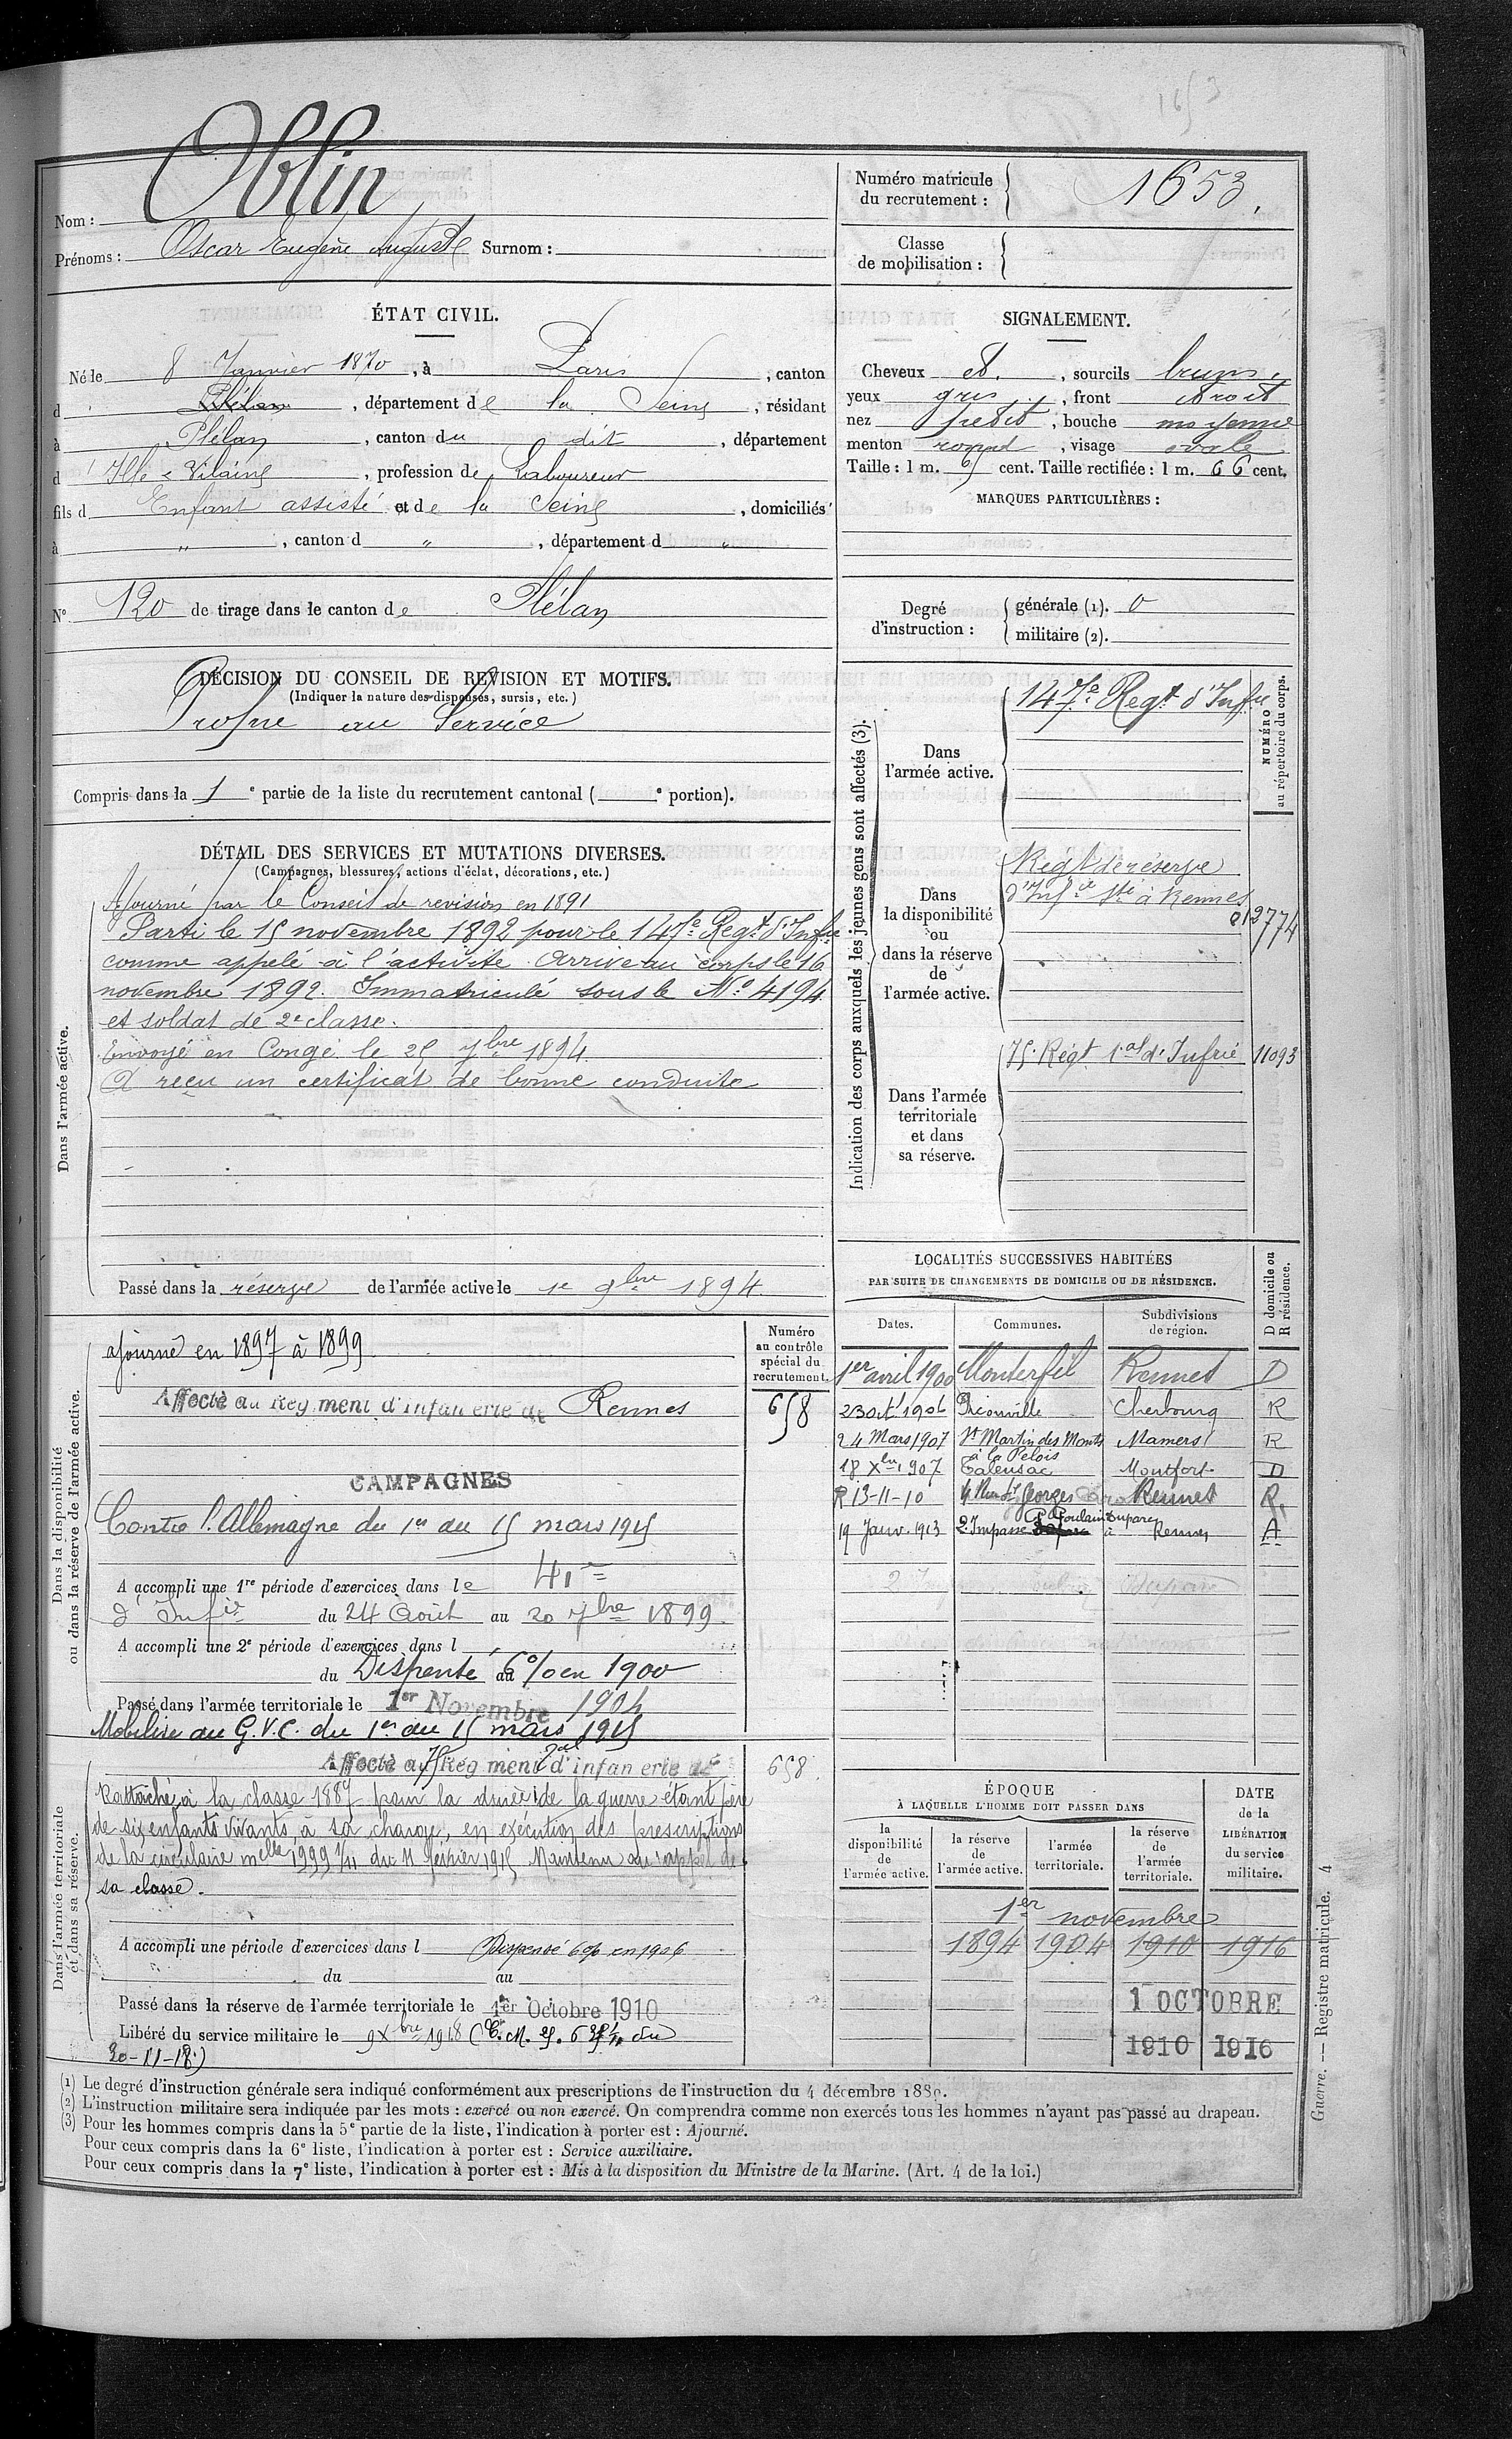 1653
Nom : Oblin
Prénoms : Oscar Eugène Auguste Surnom :
Numéro matricule du recrutement : 1653.
Classe de mobilisation :
ÉTAT CIVIL.
Né le 8 Janvier 1870, à Paris, canton
d Plélan, département de la Seine, résidant
à Plélan, canton du dit, département
d'Ille & Vilaine, profession de Laboureur
fils d Enfant assisté et de la Seine, domiciliés
à " , canton d " , département d "
N° 120 de tirage dans le canton de Plélan
SIGNALEMENT.
Cheveux et , sourcils bruns,
yeux gris , front droit
nez petit , bouche moyenne
menton rond , visage ovale
Taille : 1 m. cent. Taille rectifiée : 1 m. 66 cent.
MARQUES PARTICULIÈRES :
Degré d'instruction :
générale (1). 0
militaire (2).
DÉCISION DU CONSEIL DE REVISION ET MOTIFS.
(Indiquer la nature des dispenses, sursis, etc.)
Propre au Service
Compris dans la 1e partie de la liste du recrutement cantonal ( e portion).
DÉTAIL DES SERVICES ET MUTATIONS DIVERSES.
(Campagnes, blessures, actions d'éclat, décorations, etc.)
Dans l'armée active.
Ajourné par le Conseil de revision en 1891
Parti le 15 novembre 1892 pour le 147e Regt d'Infie
comme appelé à l'activité. Arrivé au corps le 16
novembre 1892. Immatriculé sous le No 4194
et soldat de 2e classe.
Envoyé en Congé le 25 7bre 1894
A reçu un certificat de bonne conduite
Passé dans la réserve de l'armée active le 1e 9bre 1894
Indication des corps auxquels les jeunes gens sont affectés (3).
NUMÉRO au répertoire du corps.
Dans l'armée active.
147e Regt d'Infie
Dans la disponibilité ou dans la réserve de l'armée active.
Regt de réserve
d'Infie à Rennes
012774
Dans l'armée territoriale et dans sa réserve.
75. Régt t.al d'Infrie 11093
Dans la disponibilité ou dans la réserve de l'armée active.
Numéro au contrôle spécial du recrutement.
ajourné en 1897 à 1899
Affecté au Régiment d'infanterie de Rennes
658
CAMPAGNES
Contre l'Allemagne du 1er au 15 mars 1915
A accompli une 1re période d'exercices dans le 41e
d'Infie du 24 Août au 20 7bre 1899
A accompli une 2e période d'exercices dans l
du Dispensé au 6 o/o en 1900
Passé dans l'armée territoriale le 1er Novembre 1904
Mobilisé au G.V.C. du 1er au 15 mars 1915
Dans l'armée territoriale et dans sa réserve.
Affecté au 75 Régiment tal d'infanterie de
658
Rattaché à la classe 1887 pour la durée de la guerre étant père
de six enfants vivants à sa charge, en exécution des prescriptions
de la circulaire melle 1999 1/11 du 11 février 1915 Maintenu appel de
sa classe.
A accompli une période d'exercices dans l Dispensé 6% en 1906
du au
Passé dans la réserve de l'armée territoriale le 1er Octobre 1910
Libéré du service militaire le 9 Xbre 1918 (C.M. du
30-11-18)
LOCALITÉS SUCCESSIVES HABITÉES
PAR SUITE DE CHANGEMENTS DE DOMICILE OU DE RÉSIDENCE.
Dates. Communes. Subdivisions de région. D domicile ou R résidence.
1er avril 1900 Monterfil Rennes D
23 Oct. 1906 Cherbourg R
24 Mars 1907 St Martin des Monts Mamers R
à la Pelois
18 Xbre 1907 Talensac Montfort D
R 13-11-10 4 Rue St Georges Rennes R.
19 Janv. 1913 2 Impasse Poulain Duparc à Rennes A
ÉPOQUE
À LAQUELLE L'HOMME DOIT PASSER DANS
DATE de la LIBÉRATION du service militaire.
la disponibilité de l'armée active.
la réserve de l'armée active.
l'armée territoriale.
la réserve de l'armée territoriale.
1er novembre
1894 1904 1910 1916
1 OCTOBRE
1910 1916
(1) Le degré d'instruction générale sera indiqué conformément aux prescriptions de l'instruction du 4 décembre 1889.
(2) L'instruction militaire sera indiquée par les mots : exercé ou non exercé. On comprendra comme non exercés tous les hommes n'ayant pas passé au drapeau.
(3) Pour les hommes compris dans la 5e partie de la liste, l'indication à porter est : Ajourné.
Pour ceux compris dans la 6e liste, l'indication à porter est : Service auxiliaire.
Pour ceux compris dans la 7e liste, l'indication à porter est : Mis à la disposition du Ministre de la Marine. (Art. 4 de la loi.)
Guerre. — Registre matricule. 4